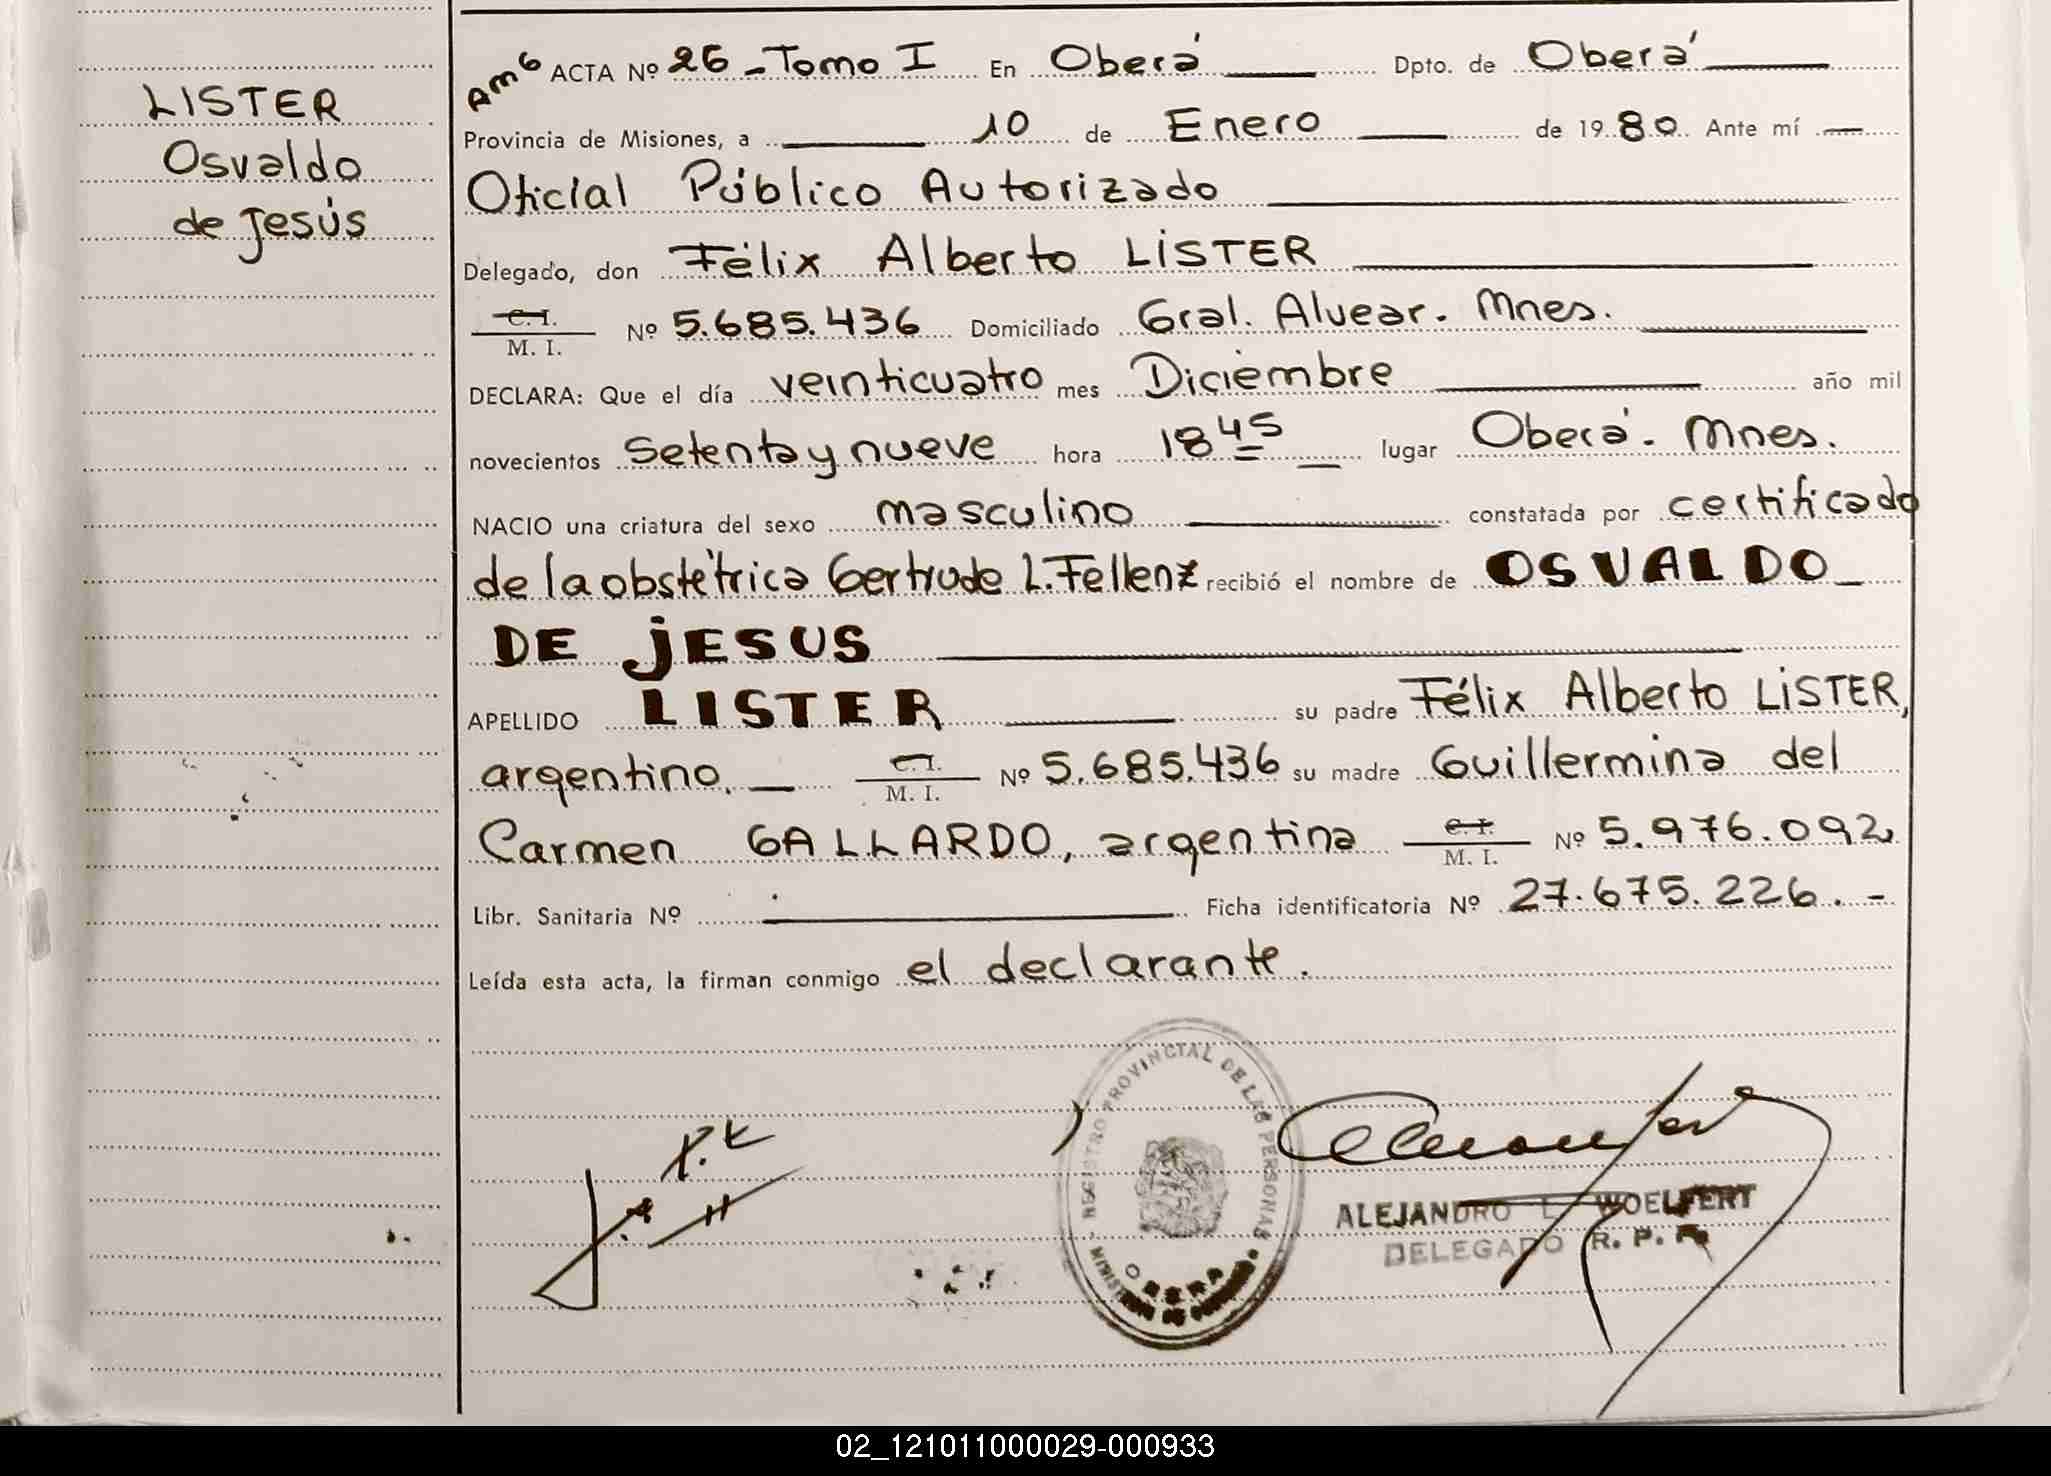 LISTER
Osvaldo
de Jesús
Am6 ACTA Nº 26 - Tomo I En Oberá Dpto. de Oberá
Provincia de Misiones, a 10 de Enero de 1980 Ante mí
Oficial Público Autorizado
Delegado, don Félix Alberto LISTER
C. I.
M. I. Nº 5.685.436 Domiciliado Gral. Alvear. Mnes.
DECLARA: Que el día veinticuatro mes Diciembre año mil
novecientos setenta y nueve hora 18 45 lugar Oberá. Mnes.
NACIO una criatura del sexo masculino constatada por certificado
de la obstétrica Gertrude L. Fellenz recibió el nombre de OSVALDO
DE JESUS
APELLIDO LISTER su padre Félix Alberto LISTER,
argentino. C. I. M. I. Nº 5.685.436 su madre Guillermina del
Carmen GALLARDO, argentina C. I. M. I. Nº 5.976.092
Libr. Sanitaria Nº Ficha identificatoria Nº 27.675.226. -
Leída esta acta, la firman conmigo el declarante.
REGISTRO PROVINCIAL DE LAS PERSONAS
OBERA
ALEJANDRO L. WOELFERT
DELEGADO R. P. P.
02_121011000029-000933